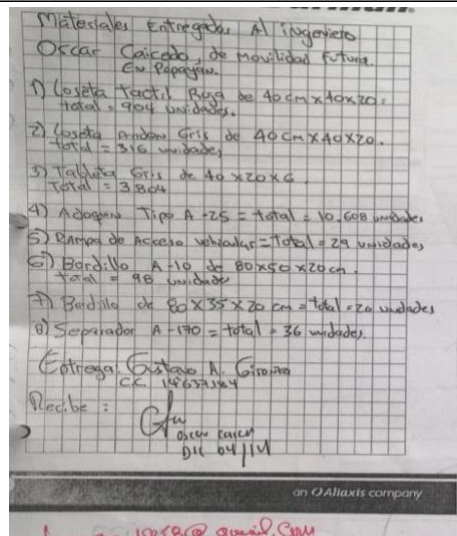 Materiales Entregados Al ingeniero
Oscar Caicedo, de Movilidad Futura.
En Popayan.
1) Loseta Tactil Roja de 40cm x 40x20.
total = 904 unidades.
2) Loseta Anden Gris de 40cm x 40x20.
total = 316 unidades
3) Tableta Gris de 40x20x6
Total = 3804
4) Adoquin Tipo A-25 = total = 10.608 unidades
5) Rampa de Acceso vehicular = Total = 29 unidades
6) Bordillo A-10 de 80x50x20cm.
total = 98 unidade
7) Bordillo de 80x35x20 cm = total = 20 unidades
8) Separador A-170 = total = 36 unidades.
Entrega: Gustavo A.
CC 14637184
Recibe :
Dic 04/14
an Aliaxis company